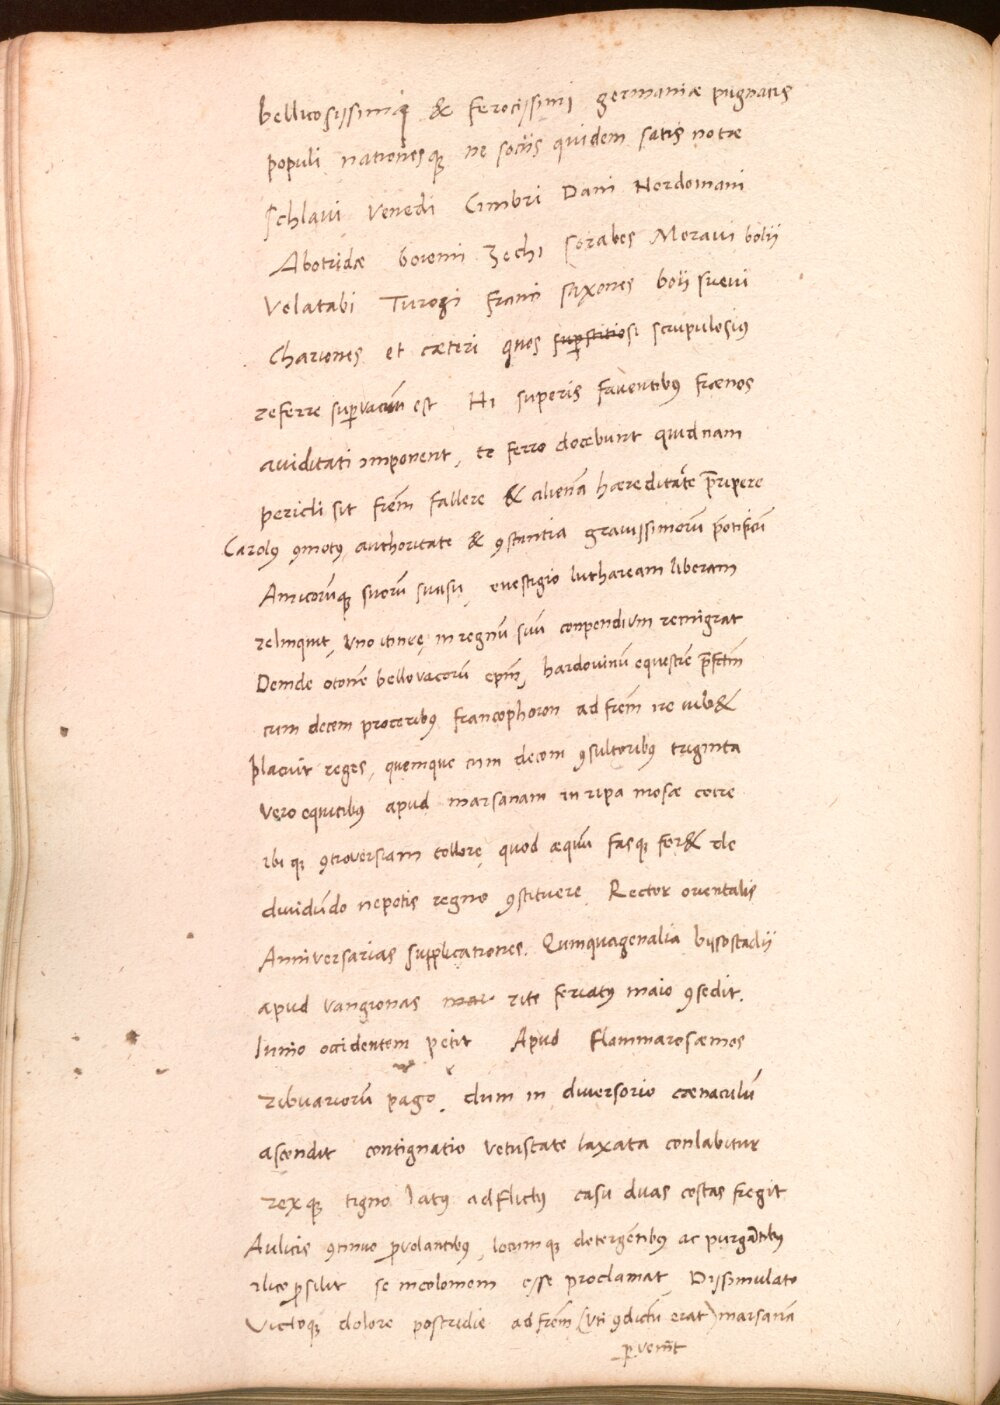 bellicosissimiq & ferocissimi germaniæ pugnacis
populi nationesq; ne sociis quidem satis notæ
Schlaui Venedi Cimbri Dani Nordomani
Abotridæ boiemi Zechi sorabes Moraui boiii
Velatabi Turogi franci saxones boii sueui
Chariones et cæteri quos sup̱stitiosi scrupulosius
referre sup̱vacuū est Hi superis fauentibꝰ frænos
auiditati imponent, et ferro docebunt quidnam
pericli sit frēm fallere & alienā hæreditatē p̄ripere
Carolꝰ ꝯmotꝰ authoritate & ꝯstantia grauissimorū p̄ncipū
Amicorūq; suorū suasu, euestigio luthaream liberam
relinquit, uno itinere in regnū suū conpendium remigrat
Deinde otonē bellouacorū ep̄m, hardouinū equestrē p̄fctm̄
cum decem proceribꝰ francophoron ad frēm ire iub&
placuit reges, quemque cum decem ꝯsultoribꝰ triginta
vero equitibꝰ apud marsanam in ripa mosæ coire
ibi q; ꝯtrouersiam tollere quod æquū fasq; for& de
diuidūdo nepotis regno ꝯstituere Rector orientalis
Anniuersarias supplicationes. Quinquagenalia
apud vangionas rite feriatꝰ maio ꝯsedit.
Iunio occidentem petit Apud Flammaresæmos
ribuariorū pago, dum in diuersorio cænaculū
ascendit contignatio vetustate laxata conlabitur
rexq; tigno latꝰ adflictꝰ casu duas costas fregit
Aulicis ꝯtinuo p̱volantibꝰ, locumq; detergētibꝰ ac purgātibꝰ
ilico p̱silit se incolomem esse proclamat, Dissimulato
Victoq; dolore postridie ad frēm (uti ꝯdictū erat) marsanā
p̱uenit